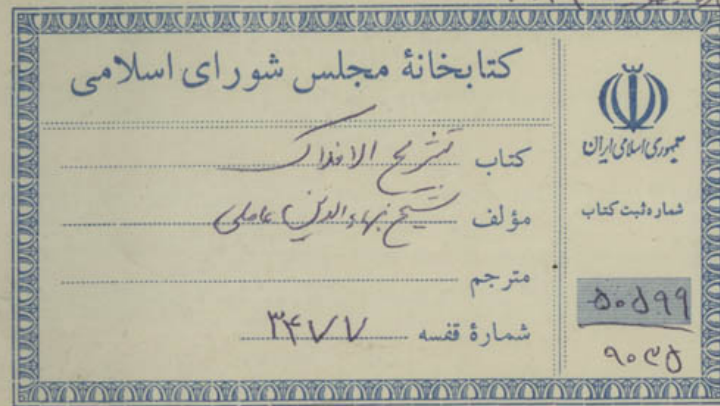 کتابخانهٔ مجلس شورای اسلامی
کتاب تشریح الافلاک
مؤلف شیخ بهاءالدین عاملی
مترجم
شمارهٔ قفسه ۳۴۷۷
جمهوری اسلامی ایران
شماره ثبت کتاب
۵۰۵۹۹